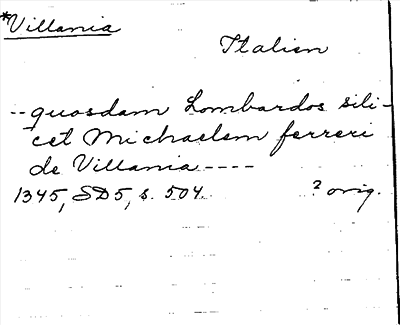 *Villania
Italien
-- quosdam Lombardos sili-
cet Michaelem ferreri
de Villania ----
1345, SD5, s. 504. ? orig.